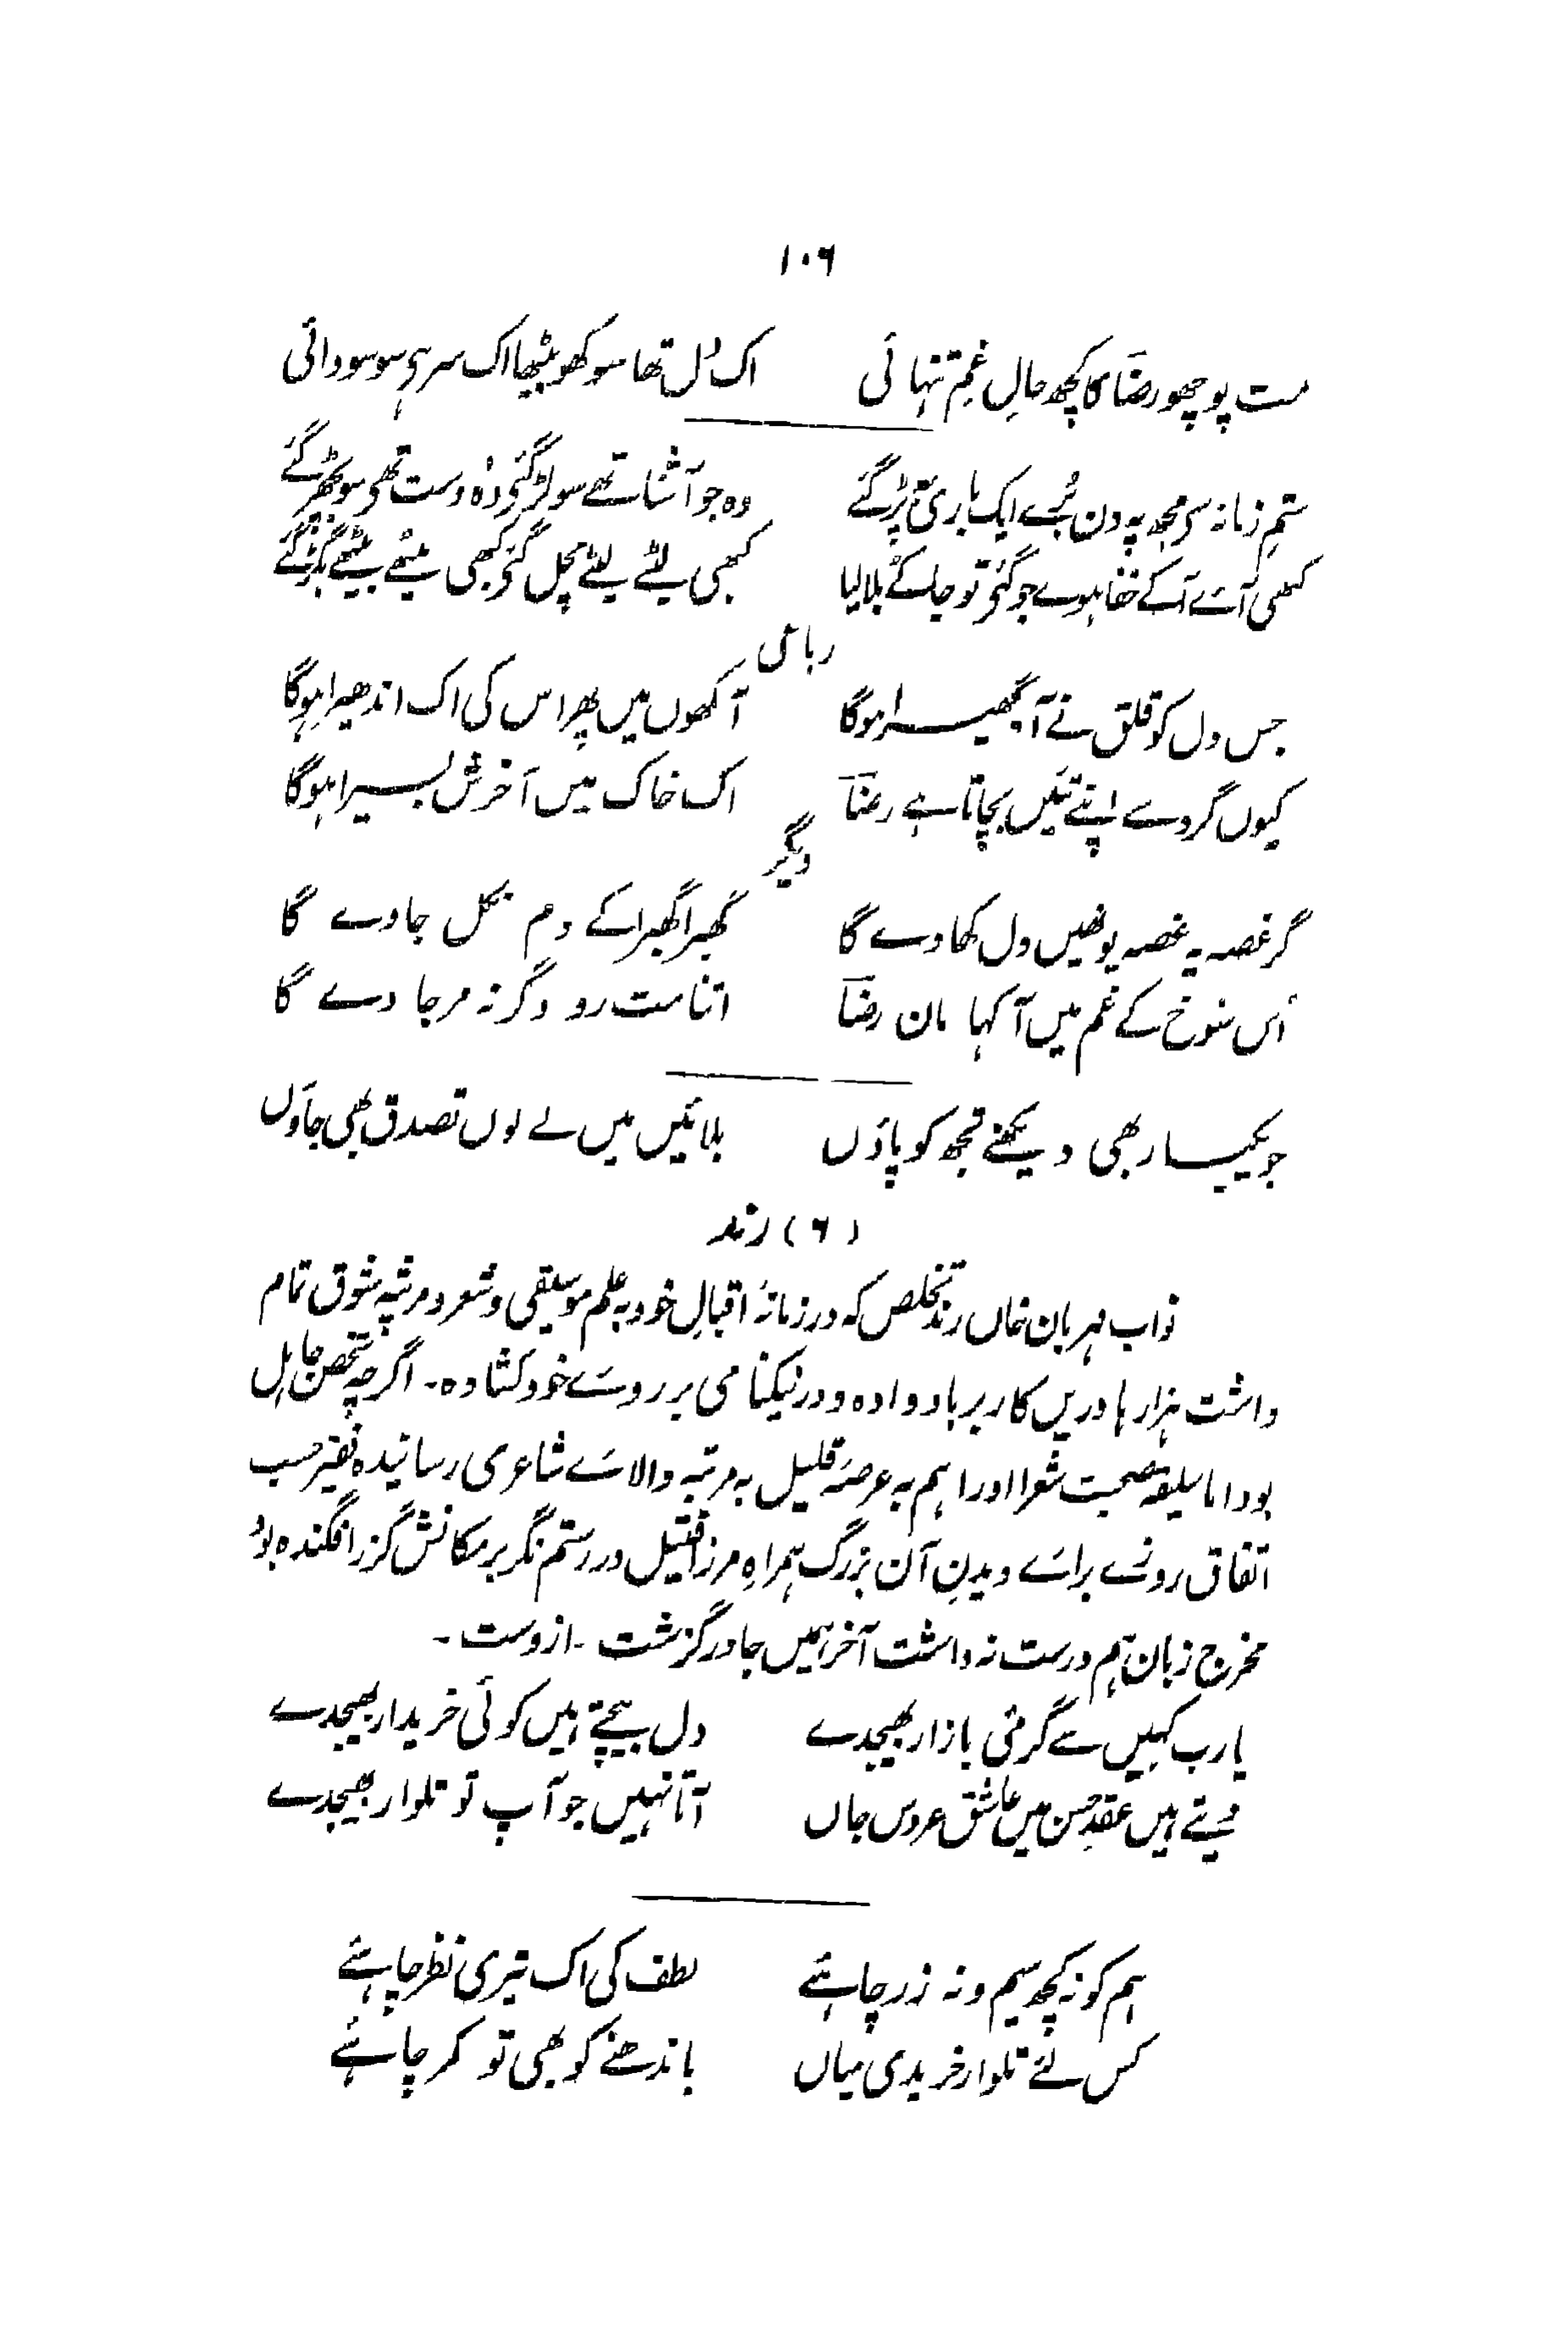 ۱۰۶
مت پوچھو رضا کا کچھ حالِ غمِ تنہائی اک دل تھا سو کھو بیٹھا اک سر ہی سو سودائی
ستمِ زمانہ سی مجھ پہ دن بُرے ایک باری پڑ گئے وہ جو آشنا تھے سو لڑ گئی وہ دوست تھی سو بچھڑ گئے
کبھی آئے آکے خفا ہوے جو گئی تو جا کے بلا لیا کبھی لیٹے لیٹے مچل گئی کبھی بیٹھے بیٹھے بگڑ گئے
رباعی
جس دل کو قلق نے آ گھیرا ہوگا آنکھوں میں پھر اس کی اک اندھیرا ہوگا
کیوں گرد سے اپنے تئیں بچاتا ہے رضا اک خاک میں آخرش بسیرا ہوگا
دیگر
گر غصہ پہ غصہ یونھیں دل کھاوے گا گھبرا گھبرا کے دم نکل جاوے گا
اُس شوخ کے غم میں آ کہا مان رضا اتنا مت رو وگرنہ مر جاوے گا
جو یکبار بھی دیکھنے تجھ کو پاؤں بلائیں میں لے لوں تصدق بھی جاؤں
(۶) رند
نواب مہربان خاں رند تخلص کہ در زمانۂ اقبالِ خود بہ علم موسیقی و شعر و مرثیہ شوق تمام
داشت ہزارہا دریں کار برباد دادہ و در نیکنامی بر روے خود کشادہ۔ اگرچہ شخص جاہل
بود اما سلیقۂ صحبت شعرا او را ہم بہ عرصۂ قلیل بہ مرتبہ والاے شاعری رسانیدہ فقیر حسب
اتفاق روزے براے دیدنِ آن بزرگ ہمراہِ مرزا قتیل در رستم نگر بر مکانش گزر افگندہ بود
مخرج زبان ہم درست نہ داشت آخر ہمیں جا در گزشت۔ ازوست۔
یارب کہیں سے گرمئی بازار بھیجدے دل بیچتے ہیں کوئی خریدار بھیجدے
دیتے ہیں عقدِ حسن میں عاشق عروس جاں آتا نہیں جو آپ تو تلوار بھیجدے
ہم کو نہ کچھ سیم و نہ زر چاہئے لطف کی اک تیری نظر چاہئے
کس لئے تلوار خریدی میاں باندھنے کو بھی تو کمر چاہئے